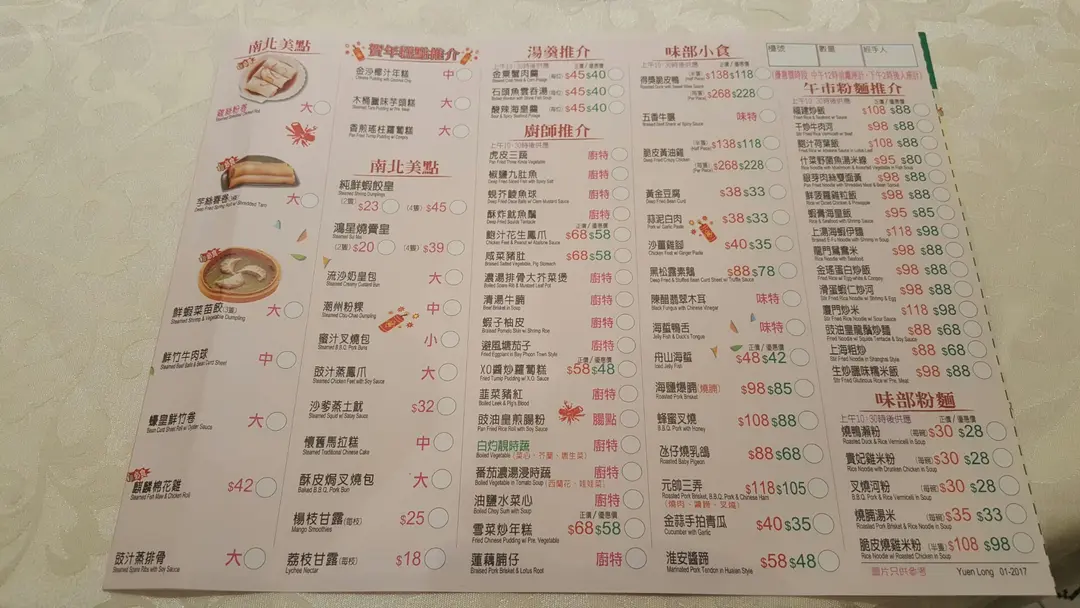 南北美點
雞絲粉卷 大
Steamed Shredded Chicken Roll
芋絲春卷 大
Deep Fried Spring Roll w/ Shredded Taro
鮮蝦菜苗餃(3隻) 大
Steamed Shrimp & Vegetable Dumpling
鮮竹牛肉球 中
Steamed Beef Balls & Bean Curd Sheet
蠔皇鮮竹卷 大
Bean Curd Sheet Roll w/ Oyster Sauce
麒麟棉花雞 $42
Steamed Fish Maw & Chicken Roll
豉汁蒸排骨 大
Steamed Spare Ribs with Soy Sauce
賀年糕點推介
金沙椰汁年糕 中
木桶臘味芋頭糕 大
香煎瑤柱蘿蔔糕 大
南北美點
純鮮蝦餃皇
Steamed Shrimp Dumplings
(2隻) $23 (4隻) $45
鴻星燒賣皇
Steamed Siu Mai
(2隻) $20 (4隻) $39
流沙奶皇包 大
Steamed Creamy Custard Bun
潮州粉粿 中
Steamed Chiu Chau Dumpling
蜜汁叉燒包 小
Steamed B.B.Q. Pork Buns
豉汁蒸鳳爪 大
Steamed Chicken Feet with Soy Sauce
沙爹蒸土魷 $32
Steamed Squid w/ Satay Sauce
懷舊馬拉糕 中
Steamed Traditional Chinese Cake
酥皮焗叉燒包 大
Baked B.B.Q. Pork Bun
楊枝甘露(每枝) $25
Mango Smoothies
荔枝甘露(每枝) $18
Lychee Nectar
湯羹推介
上午10:30時後供應 正價/優惠價
金粟蟹肉羹 (每位) $45 $40
石頭魚雲吞湯 (每位) $45 $40
酸辣海皇羹 (每位) $45 $40
Sour & Spicy Seafood Potage
廚師推介
上午10:30時後供應
虎皮三蔬 廚特
Pan Fried Three Kinds Vegetable
椒鹽九肚魚 廚特
蝦芥鯪魚球 廚特
酥炸魷魚鬚 廚特
Deep Fried Squids Tentacle
正價/優惠價
鮑汁花生鳳爪 $68 $58
Chicken Feet & Peanut w/ Abalone Sauce
咸菜豬肚 $68 $58
濃湯排骨大芥菜煲 廚特
清湯牛腩 廚特
Beef Brisket in Soup
蝦子柚皮 廚特
Braised Pomelo Skin w/ Shrimp Roe
避風塘茄子 廚特
Fried Eggplant w/ Bay Phoon Town Style
正價/優惠價
XO醬炒蘿蔔糕 $58 $48
Fried Turnip Pudding w/ X.O. Sauce
韮菜豬紅 廚特
Boiled Leek & Pig's Blood
豉油皇煎腸粉 腸點
Pan Fried Rice Roll with Soy Sauce
白灼靚時蔬 廚特
Boiled Vegetable (菜心、芥蘭、唐生菜)
番茄濃湯浸時蔬 廚特
Boiled Vegetable in Tomato Soup (西蘭花、娃娃菜)
油鹽水菜心 廚特
Boiled Choy Sum with Soup
正價/優惠價
雪菜炒年糕 $68 $58
Fried Chinese Pudding w/ Pre. Vegetable
蓮藕腩仔 廚特
Braised Pork Brisket & Lotus Root
味部小食
上午10:30時後供應 正價/優惠價
得獎脆皮鴨 (半隻) $138 $118
(Half Piece)
(每隻) $268 $228
(Per Piece)
五香牛𦟌 味特
Boiled Beef Shank w/ Spicy Sauce
正價/優惠價
脆皮黃油雞 (半隻) $138 $118
(Half Piece)
(每隻) $268 $228
(Per Piece)
黃金豆腐 $38 $33
Deep Fried Bean Curd
蒜泥白肉 $38 $33
Pork w/ Garlic Paste
沙薑雞腳 $40 $35
Chicken Feet w/ Ginger Paste
黑松露素鵝 $88 $78
陳醋翡翠木耳 味特
Black Fungus with Chinese Vinegar
海蜇鴨舌 味特
Jelly Fish & Duck's Tongue
正價/優惠價
舟山海蜇 $48 $42
Iced Jelly Fish
海鹽爆腩(燒腩) $98 $85
Roasted Pork Brisket
蜂蜜叉燒 $108 $88
B.B.Q. Pork with Honey
氹仔燒乳鴿 $88 $68
Roasted Baby Pigeon
元帥三弄 $118 $105
Roasted Pork Brisket, B.B.Q. Pork & Chinese Ham
(燒肉、醬腳、叉燒)
金蒜手拍青瓜 $40 $35
Cucumber with Garlic
淮安醬蹄 $58 $48
Marinated Pork Tendon in Huaian Style
檯號 數量 經手人
午市粉麵推介
上午10:30時後供應 正價/優惠價
福建炒飯 $108 $88
干炒牛肉河 $98 $88
鮑汁荷葉飯 $108 $88
什菜野菌魚湯米線 $95 $80
銀芽肉絲雙面黃 $98 $88
鮮菠蘿雞粒飯 $98 $88
蝦膏海皇飯 $95 $85
Rice & Seafood with Shrimp Sauce
上湯海蝦伊麵 $118 $98
龍門鴛鴦米 $98 $88
金瑤蛋白炒飯 $98 $88
滑蛋蝦仁炒河 $98 $88
Stir Fried Rice Noodle w/ Shrimp & Egg
廈門炒米 $118 $98
豉油皇龍鬚炒麵 $88 $68
上海粗炒 $88 $68
Stir Fried Noodle in Shanghai Style
生炒臘味糯米飯 $98 $88
Stir Fried Glutinous Rice w/ Pre. Meat
味部粉麵
上午10:30時後供應 正價/優惠價
燒鴨瀨粉 (每碗) $30 $28
Roasted Duck & Rice Vermicelli in Soup
貴妃雞米粉 (每碗) $30 $28
Rice Noodle with Drunken Chicken in Soup
叉燒河粉 (每碗) $30 $28
B.B.Q. Pork & Rice Vermicelli in Soup
燒腩湯米 (每碗) $35 $33
Roasted Pork Brisket & Rice Noodle in Soup
脆皮燒雞米粉 (半隻) $108 $98
Rice Noodle w/ Roasted Chicken in Soup
圖片只供參考 Yuen Long 01-2017